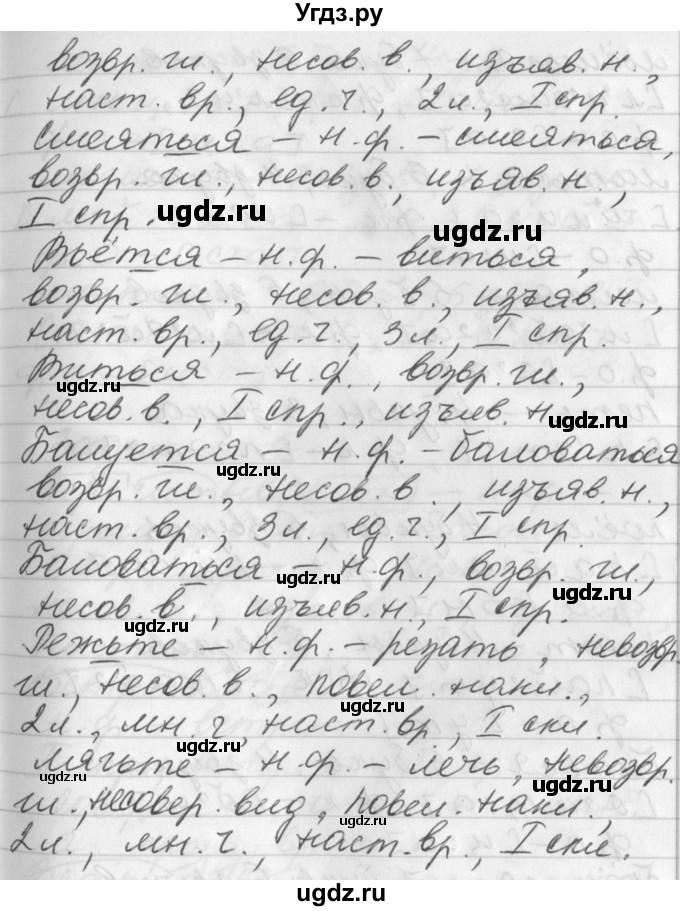 Угдз.ру
возвр. гл., несов. в., изъяв. н.,
наст. вр., ед. ч., 2 л., I спр.
смеяться – н.ф. – смеяться,
возвр. гл., несов. в., изъяв. н.,
I спр.
ugdz.ru
ugdz.ru
Вьётся – н.ф. – виться,
возвр. гл., несов. в., изъяв. н.,
ugdz.ru
наст. вр., ед. г., 3 л., I спр.
ugdz.ru
Виться – н.ф., возвр. гл.,
ugdz.ru
несов. в., I спр., изъяв. н.
ugdz.ru
Балуется – н.ф. – баловаться
ugdz.ru
возвр. гл., несов. в., изъяв. н.,
наст. вр., 3 л., ед. г., I спр.
ugdz.ru
Баловаться – н.ф., возвр. гл.,
ugdz.ru
несов. в., изъяв. н., I спр.
ugdz.ru
Режьте – н.ф. – резать, невозвр.
гл., несов. в., повел. накл.,
ugdz.ru
2 л., мн. г, наст. вр, I скл.
ugdz.ru
лягьте – н.ф. – лечь, невозвр.
ugdz.ru
ugdz.ru
гл., несовер. вид, повел. накл.,
ugdz.ru
2 л., мн. г., наст. вр., I скл.
ugdz.ru
ugdz.ru